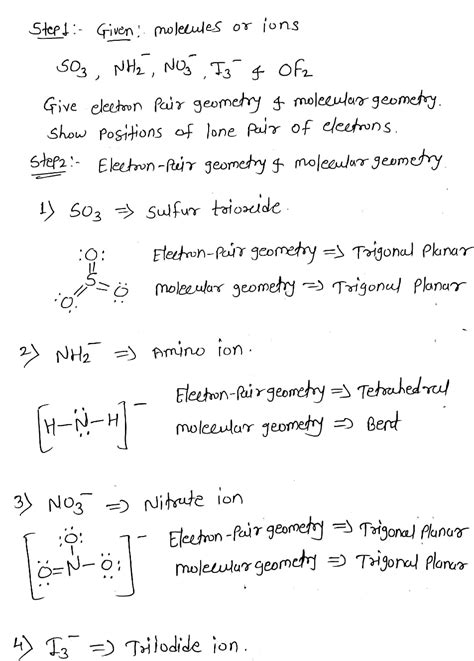 Step1:- Given: molecules or ions
SO3, NH2-, NO3-, I3- & OF2
Give electron Pair geometry & molecular geometry.
Show Positions of lone Pair of electrons.
Step2:- Electron-Pair geometry & molecular geometry
1) SO3 ⇒ Sulfur trioxide.
:O:
S
:O: O
Electron-Pair geometry ⇒ Trigonal Planar
molecular geometry ⇒ Trigonal Planar
2) NH2- ⇒ Amino ion.
[H-N-H]-
Electron-Pair geometry ⇒ Tetrahedral
molecular geometry ⇒ Bent
3) NO3- ⇒ Nitrate ion
:O:
[O=N-O:]-
Electron-Pair geometry ⇒ Trigonal Planar
molecular geometry ⇒ Trigonal Planar
4) I3- ⇒ Triiodide ion.